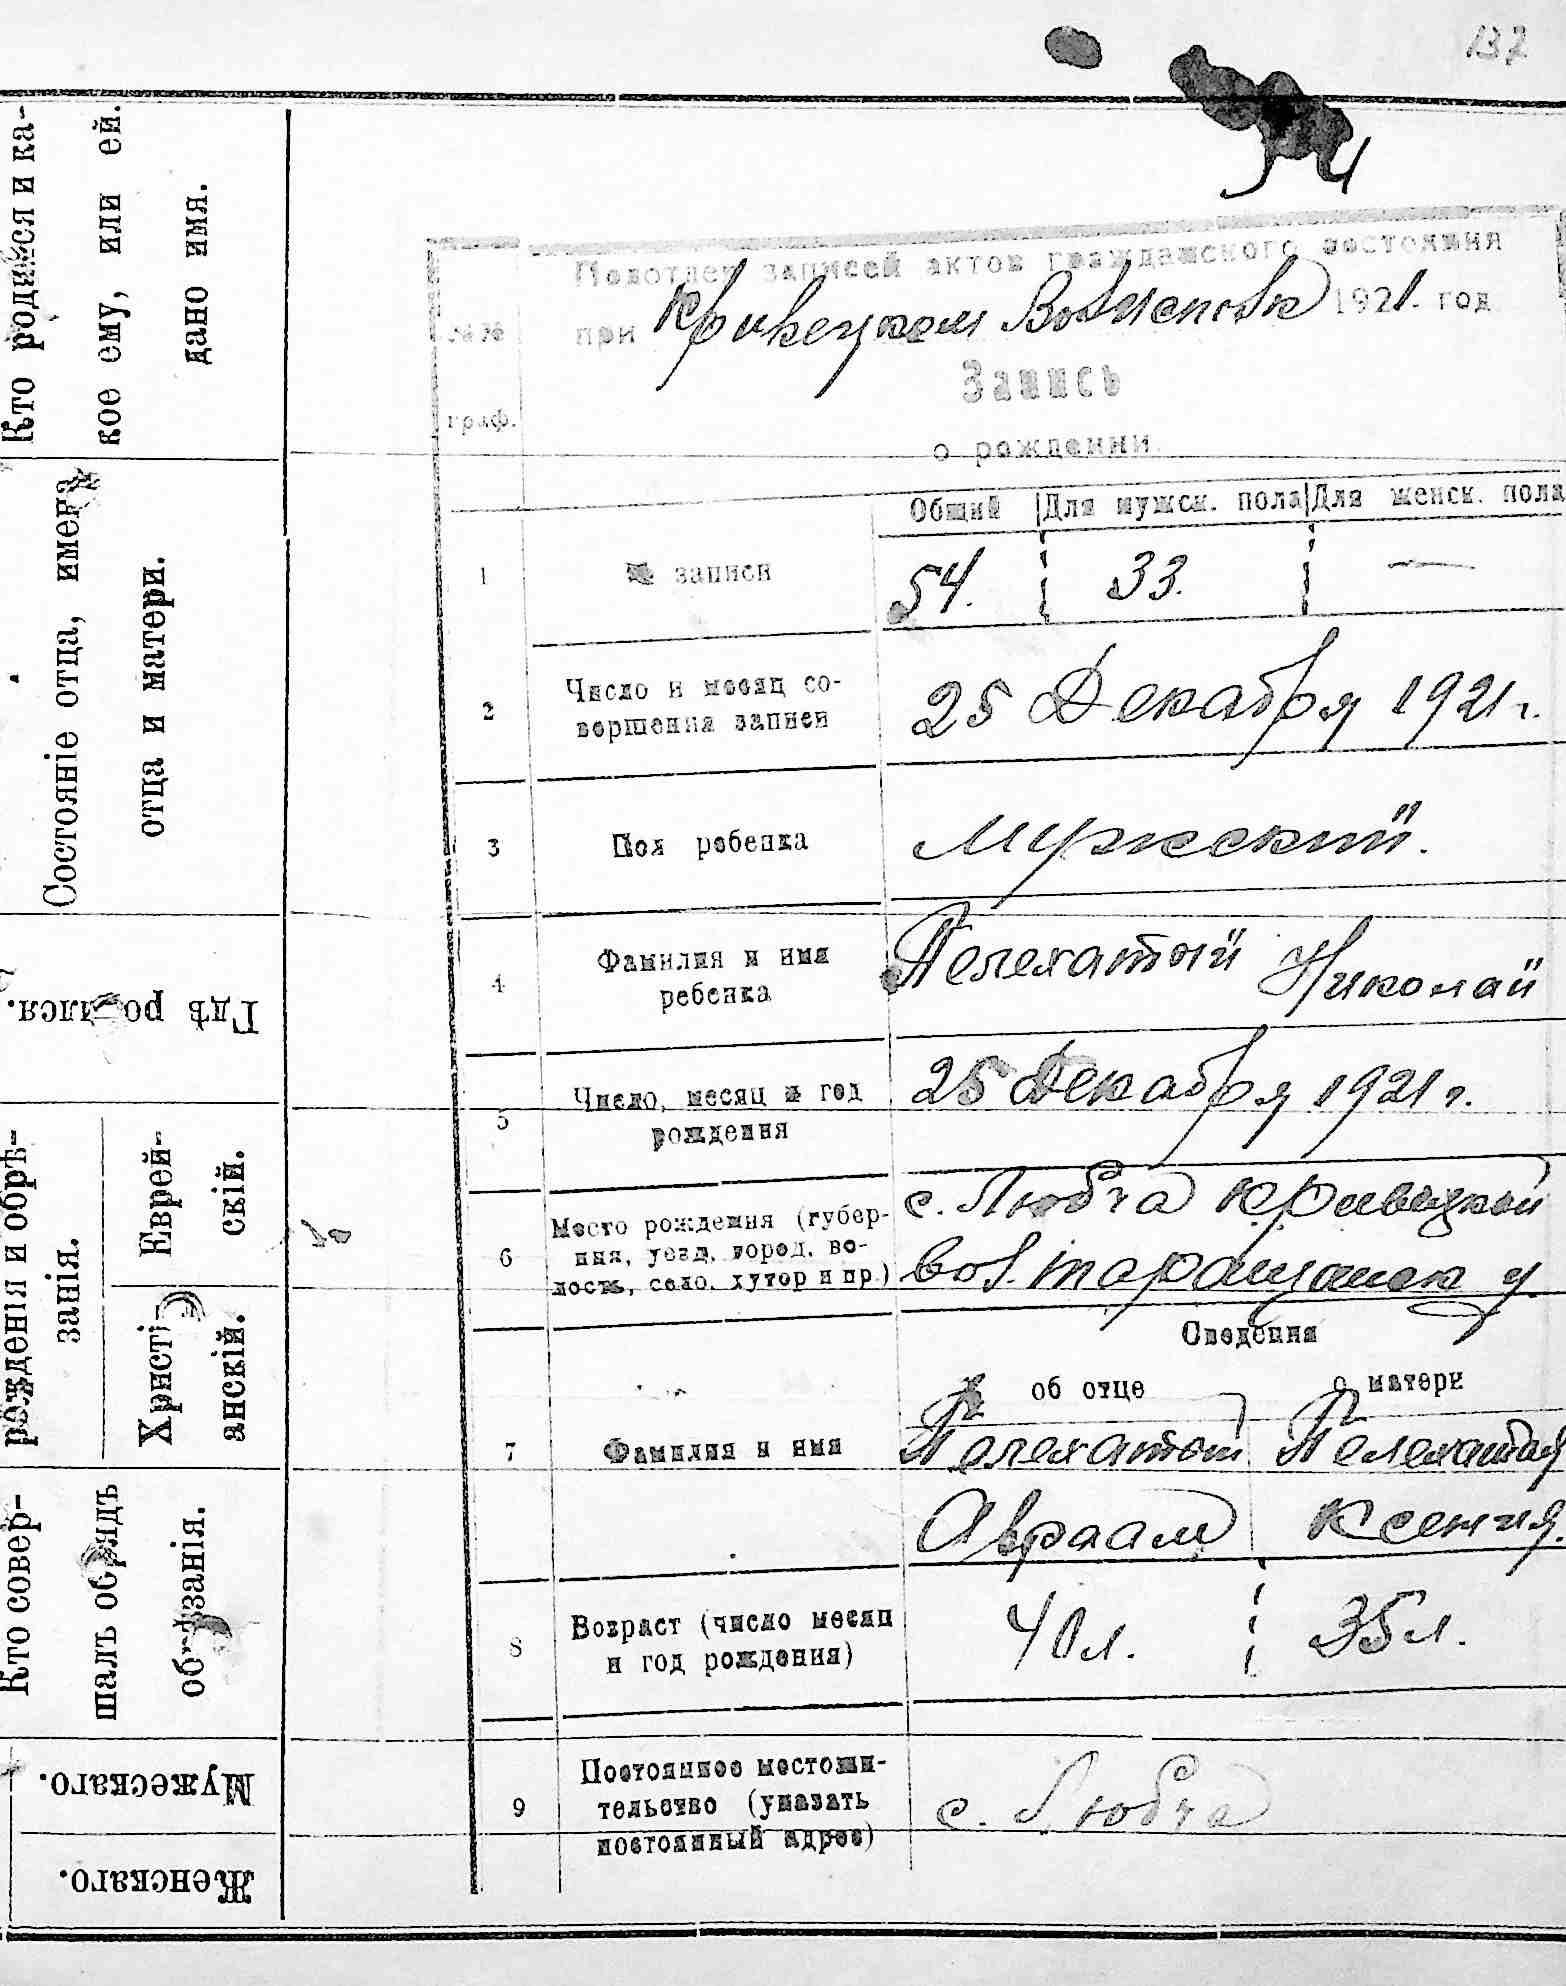 132
54
Кто родился и ка-
кое ему, или ей.
дано имя.
Состояніе отца, имена
отца и матери.
Гдѣ родился.
рожденія и обрѣ-
занія.
Еврей-
скій.
Христі-
анскій.
Кто совер-
шалъ обрядъ
обрѣзанія.
Мужескаго.
Женскаго.
Подотдел записей актов гражданского состояния
при Кривецком Волисполк 1921. год
№№
граф.
Запись
о рождении
Общий Для мужск. пола Для женск. пола
1 № записи 54. 33. —
2 Число и месяц со-
вершения записи
25 Декабря 1921 г.
3 Пол ребенка Мужеский.
4 Фамилия и имя
ребенка
Пелехатый Николай
5 Число, месяц и год
рождения
25 Декабря 1921 г.
6 Место рождения (губер-
ния, уезд, город, во-
лость, село, хутор и пр.)
с. Любча Кривецкой
вол. Таращанск у
Сведения
об отце о матери
7 Фамилия и имя Пелехатый Пелехатая
Авраам Ксения.
8 Возраст (число месяц
и год рождения)
40 л. 35 л.
9 Постоянное местожи-
тельство (указать
постоянный адрес)
с. Любча